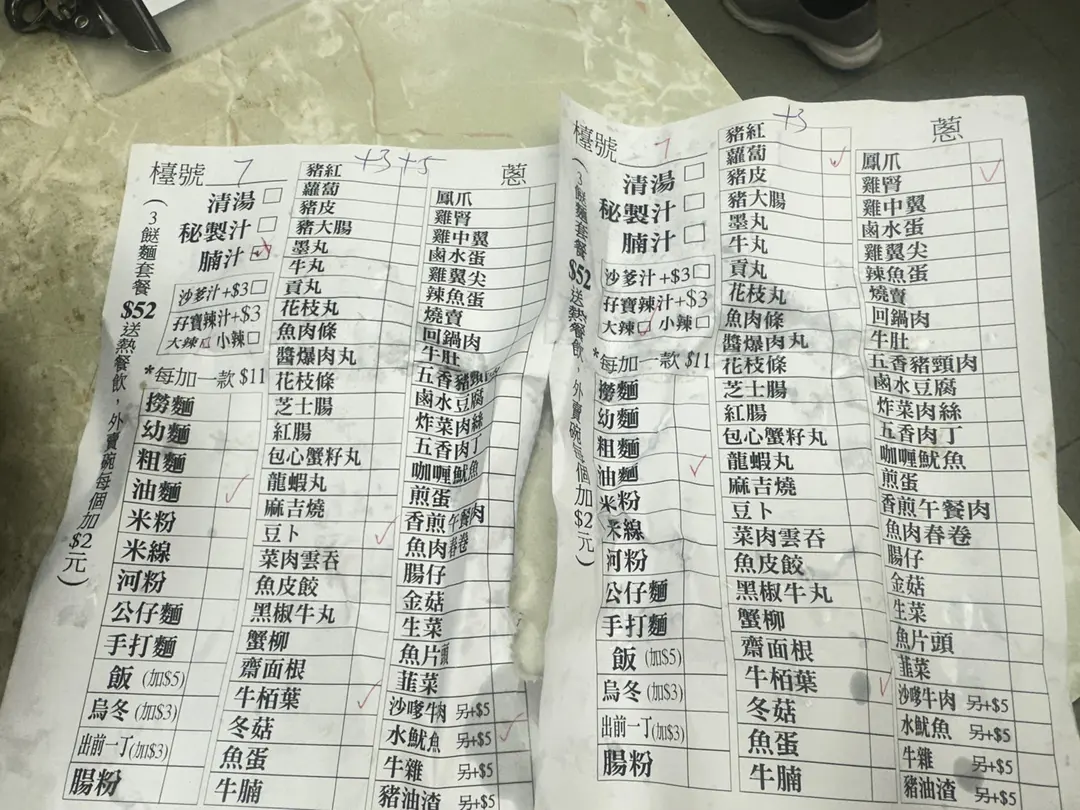 檯號 7
+3 +5
蔥
清湯
秘製汁
腩汁
沙爹汁+$3
孖寶辣汁+$3
大辣 小辣
*每加一款 $11
(3餸麵套餐$52送熱餐飲，外賣碗每個加$2元)
撈麵
幼麵
粗麵
油麵
米粉
米線
河粉
公仔麵
手打麵
飯 (加$5)
烏冬(加$3)
出前一丁(加$3)
腸粉
豬紅
蘿蔔
豬皮
豬大腸
墨丸
牛丸
貢丸
花枝丸
魚肉條
醬爆肉丸
花枝條
芝士腸
紅腸
包心蟹籽丸
龍蝦丸
麻吉燒
豆卜
菜肉雲吞
魚皮餃
黑椒牛丸
蟹柳
齋面根
牛栢葉
冬菇
魚蛋
牛腩
鳳爪
雞腎
雞中翼
鹵水蛋
雞翼尖
辣魚蛋
燒賣
回鍋肉
牛肚
五香豬頸肉
鹵水豆腐
炸菜肉絲
五香肉丁
咖喱魷魚
煎蛋
香煎午餐肉
魚肉春卷
腸仔
金菇
生菜
魚片頭
韮菜
沙嗲牛肉 另+$5
水魷魚 另+$5
牛雜 另+$5
豬油渣 另+$5
檯號 7
+3
蔥
清湯
秘製汁
腩汁
沙爹汁+$3
孖寶辣汁+$3
大辣 小辣
*每加一款 $11
(3餸麵套餐$52送熱餐飲，外賣碗每個加$2元)
撈麵
幼麵
粗麵
油麵
米粉
米線
河粉
公仔麵
手打麵
飯 (加$5)
烏冬(加$3)
出前一丁(加$3)
腸粉
豬紅
蘿蔔
豬皮
豬大腸
墨丸
牛丸
貢丸
花枝丸
魚肉條
醬爆肉丸
花枝條
芝士腸
紅腸
包心蟹籽丸
龍蝦丸
麻吉燒
豆卜
菜肉雲吞
魚皮餃
黑椒牛丸
蟹柳
齋面根
牛栢葉
冬菇
魚蛋
牛腩
鳳爪
雞腎
雞中翼
鹵水蛋
雞翼尖
辣魚蛋
燒賣
回鍋肉
牛肚
五香豬頸肉
鹵水豆腐
炸菜肉絲
五香肉丁
咖喱魷魚
煎蛋
香煎午餐肉
魚肉春卷
腸仔
金菇
生菜
魚片頭
韮菜
沙嗲牛肉 另+$5
水魷魚 另+$5
牛雜 另+$5
豬油渣 另+$5